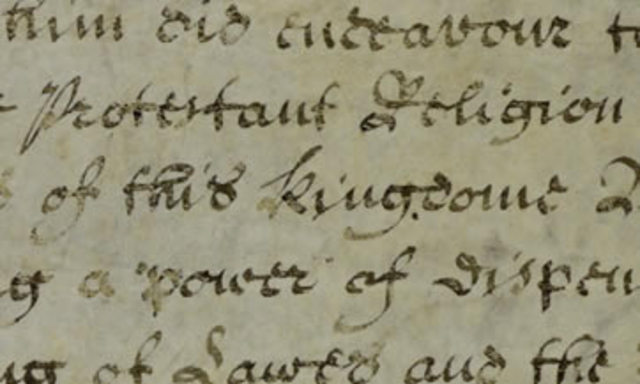 him did endeavour to
Protestant Religion
of this Kingdome
g a power of dispen
ng of Lawes and the